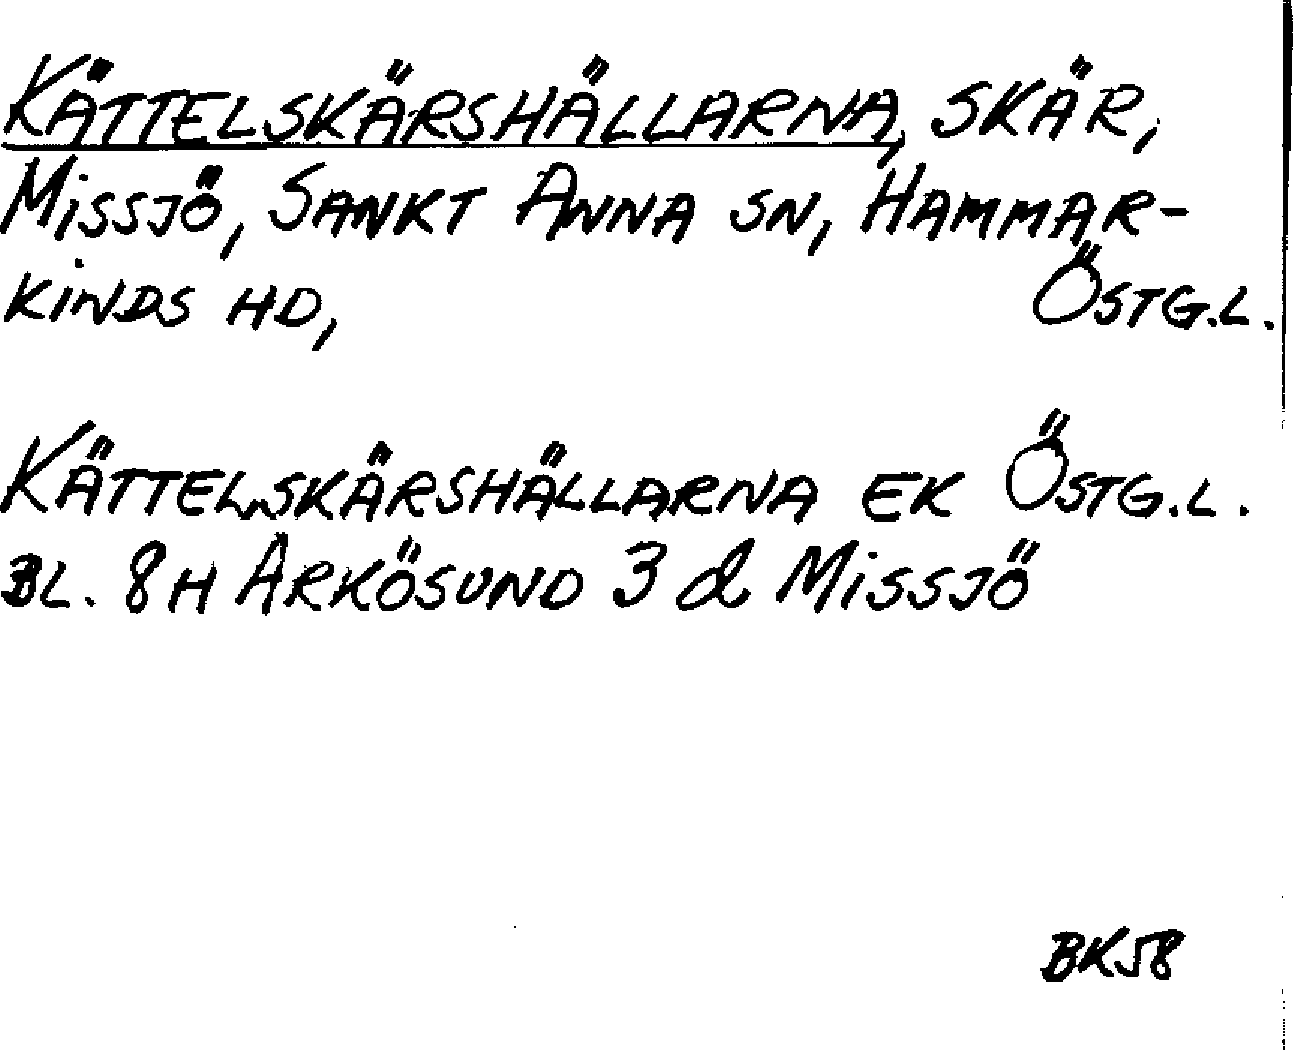 KÄTTELSKÄRSHÄLLARNA, SKÄR,
MISSJÖ, SANKT ANNA SN, HAMMAR-
KINDS HD, ÖSTG.L.
KÄTTELSKÄRSHÄLLARNA EK ÖSTG.L.
BL. 8H ARKÖSUND 3 d MISSJÖ
BK58